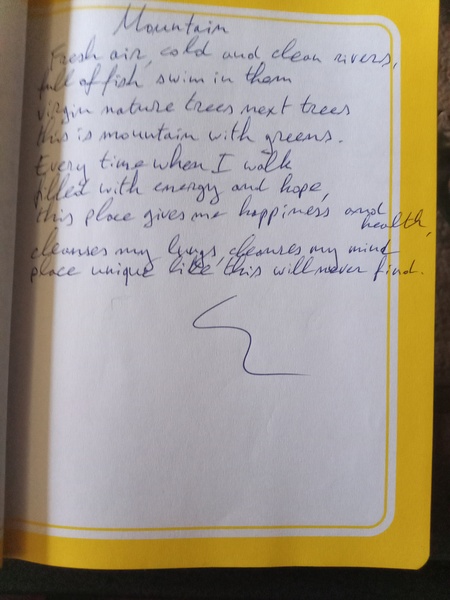 Mountain
Fresh air, cold and clean rivers,
full of fish swim in them
virgin nature trees next trees
this is mountain with greens.
Every time when I walk
filled with energy and hope,
this place gives me happiness and
health,
cleanses my lungs, cleanses my mind
place unique like this will never find.